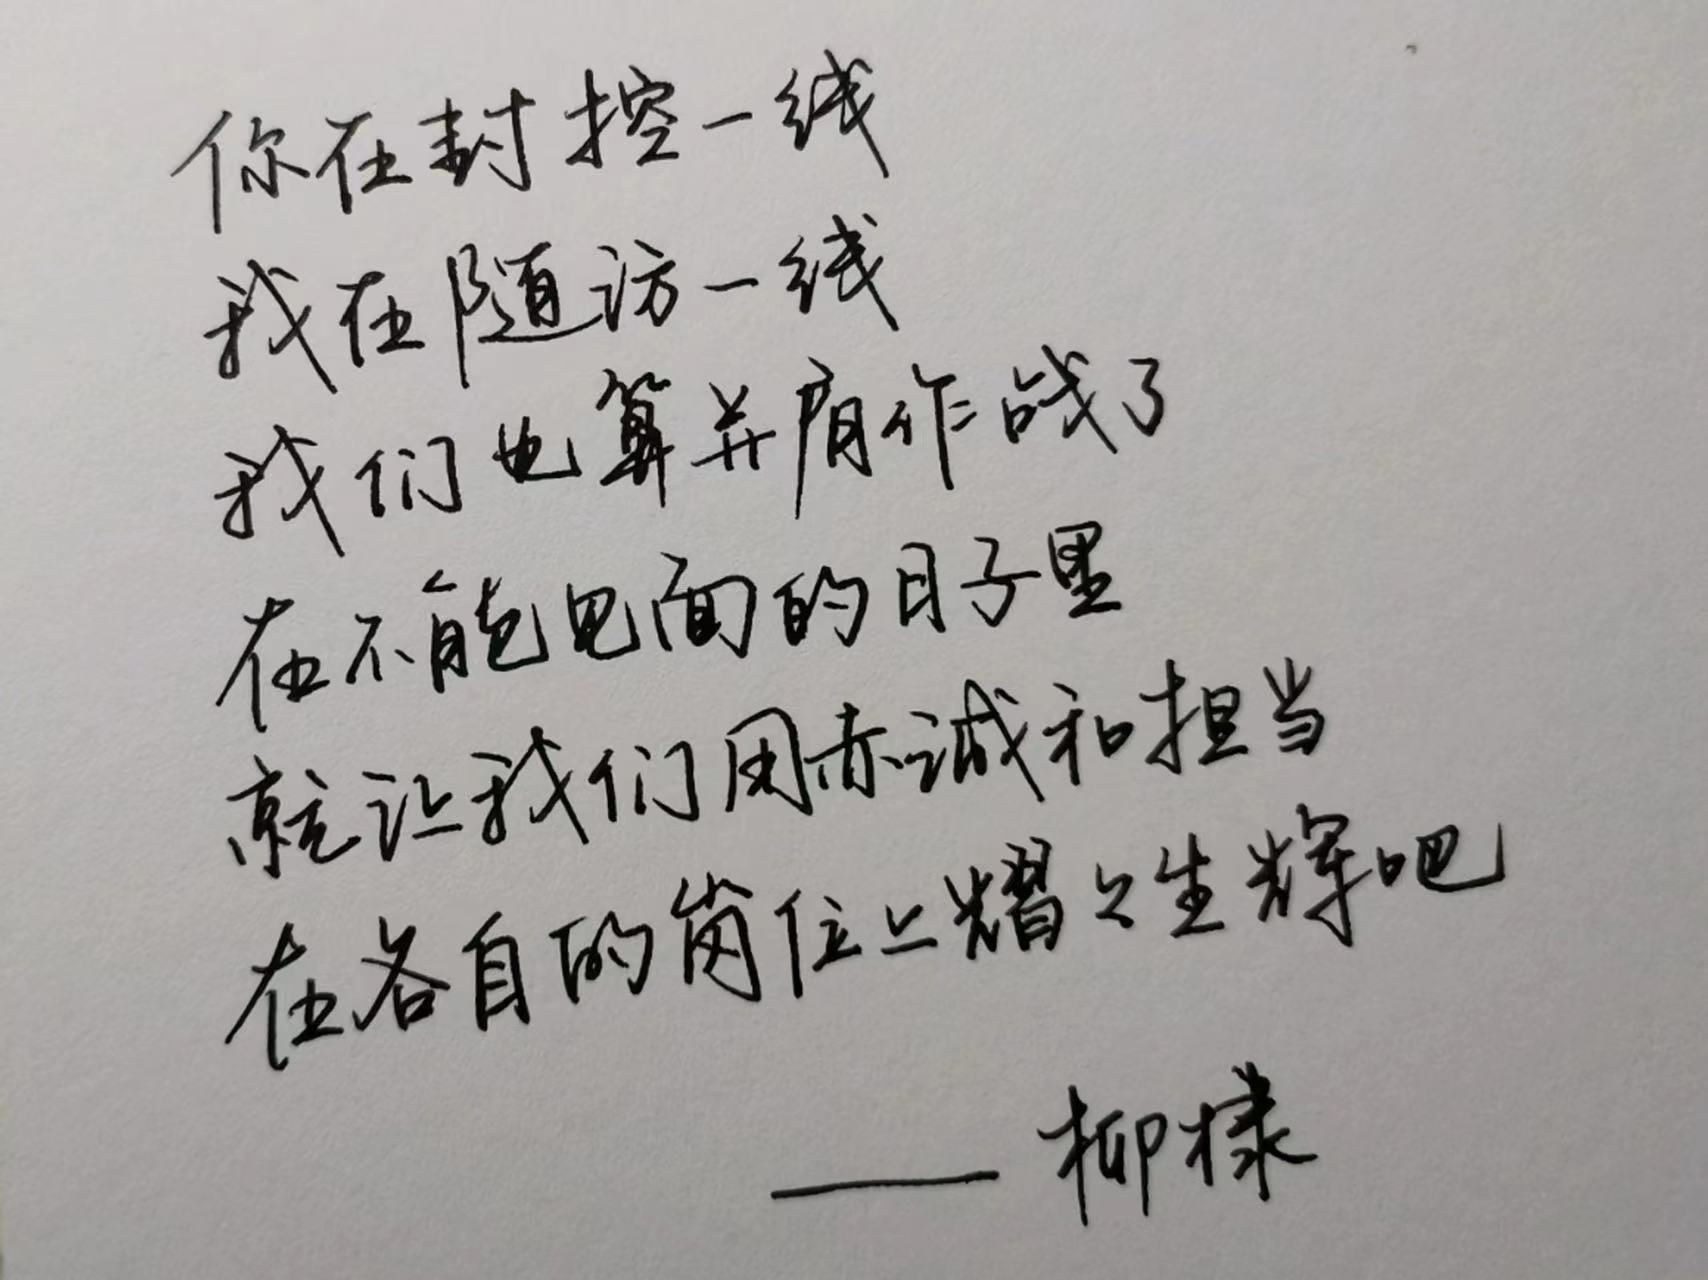 你在封控一线
我在随访一线
我们也算并肩作战了
在不能见面的日子里
就让我们用赤诚和担当
在各自的岗位上耀々生辉吧
——柳様